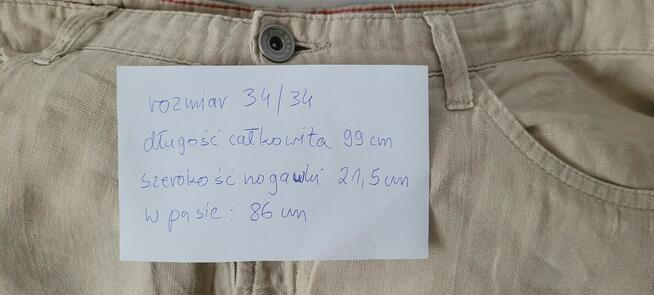 rozmiar 34/34
długość całkowita 99 cm
szerokość nogawki 21,5 cm
w pasie: 86 cm